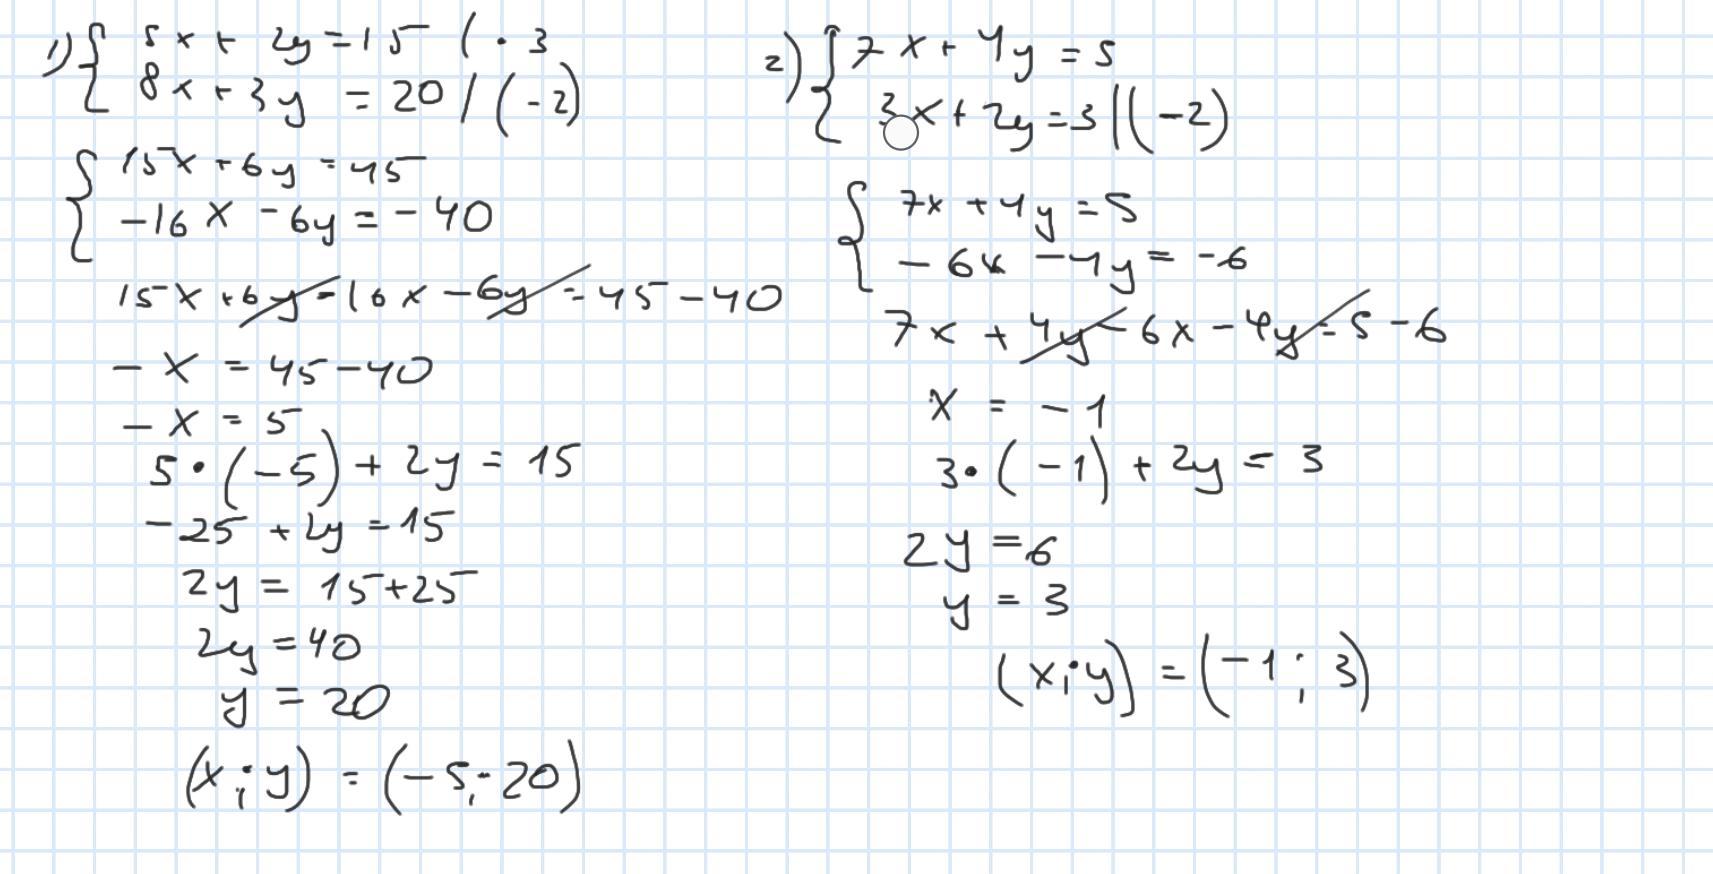 1) { 5x + 2y = 15 / · 3
8x + 3y = 20 / (-2)
{ 15x + 6y = 45
-16x - 6y = -40
15x + 6y - 16x - 6y = 45 - 40
-x = 45 - 40
-x = 5
5 · (-5) + 2y = 15
-25 + 2y = 15
2y = 15 + 25
2y = 40
y = 20
(x; y) = (-5; 20)
2) { 7x + 4y = 5
3x + 2y = 3 | (-2)
{ 7x + 4y = 5
-6x - 4y = -6
7x + 4y - 6x - 4y = 5 - 6
x = -1
3 · (-1) + 2y = 3
2y = 6
y = 3
(x; y) = (-1; 3)